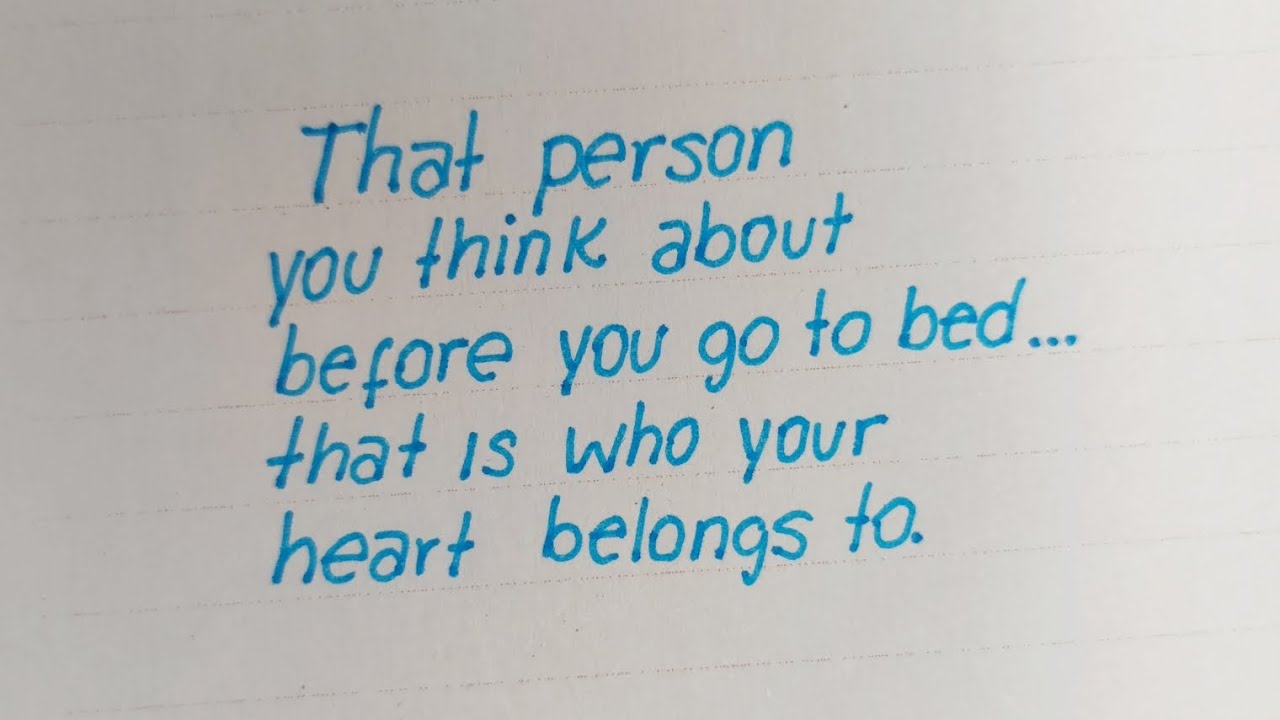 That person
you think about
before you go to bed...
that is who your
heart belongs to.